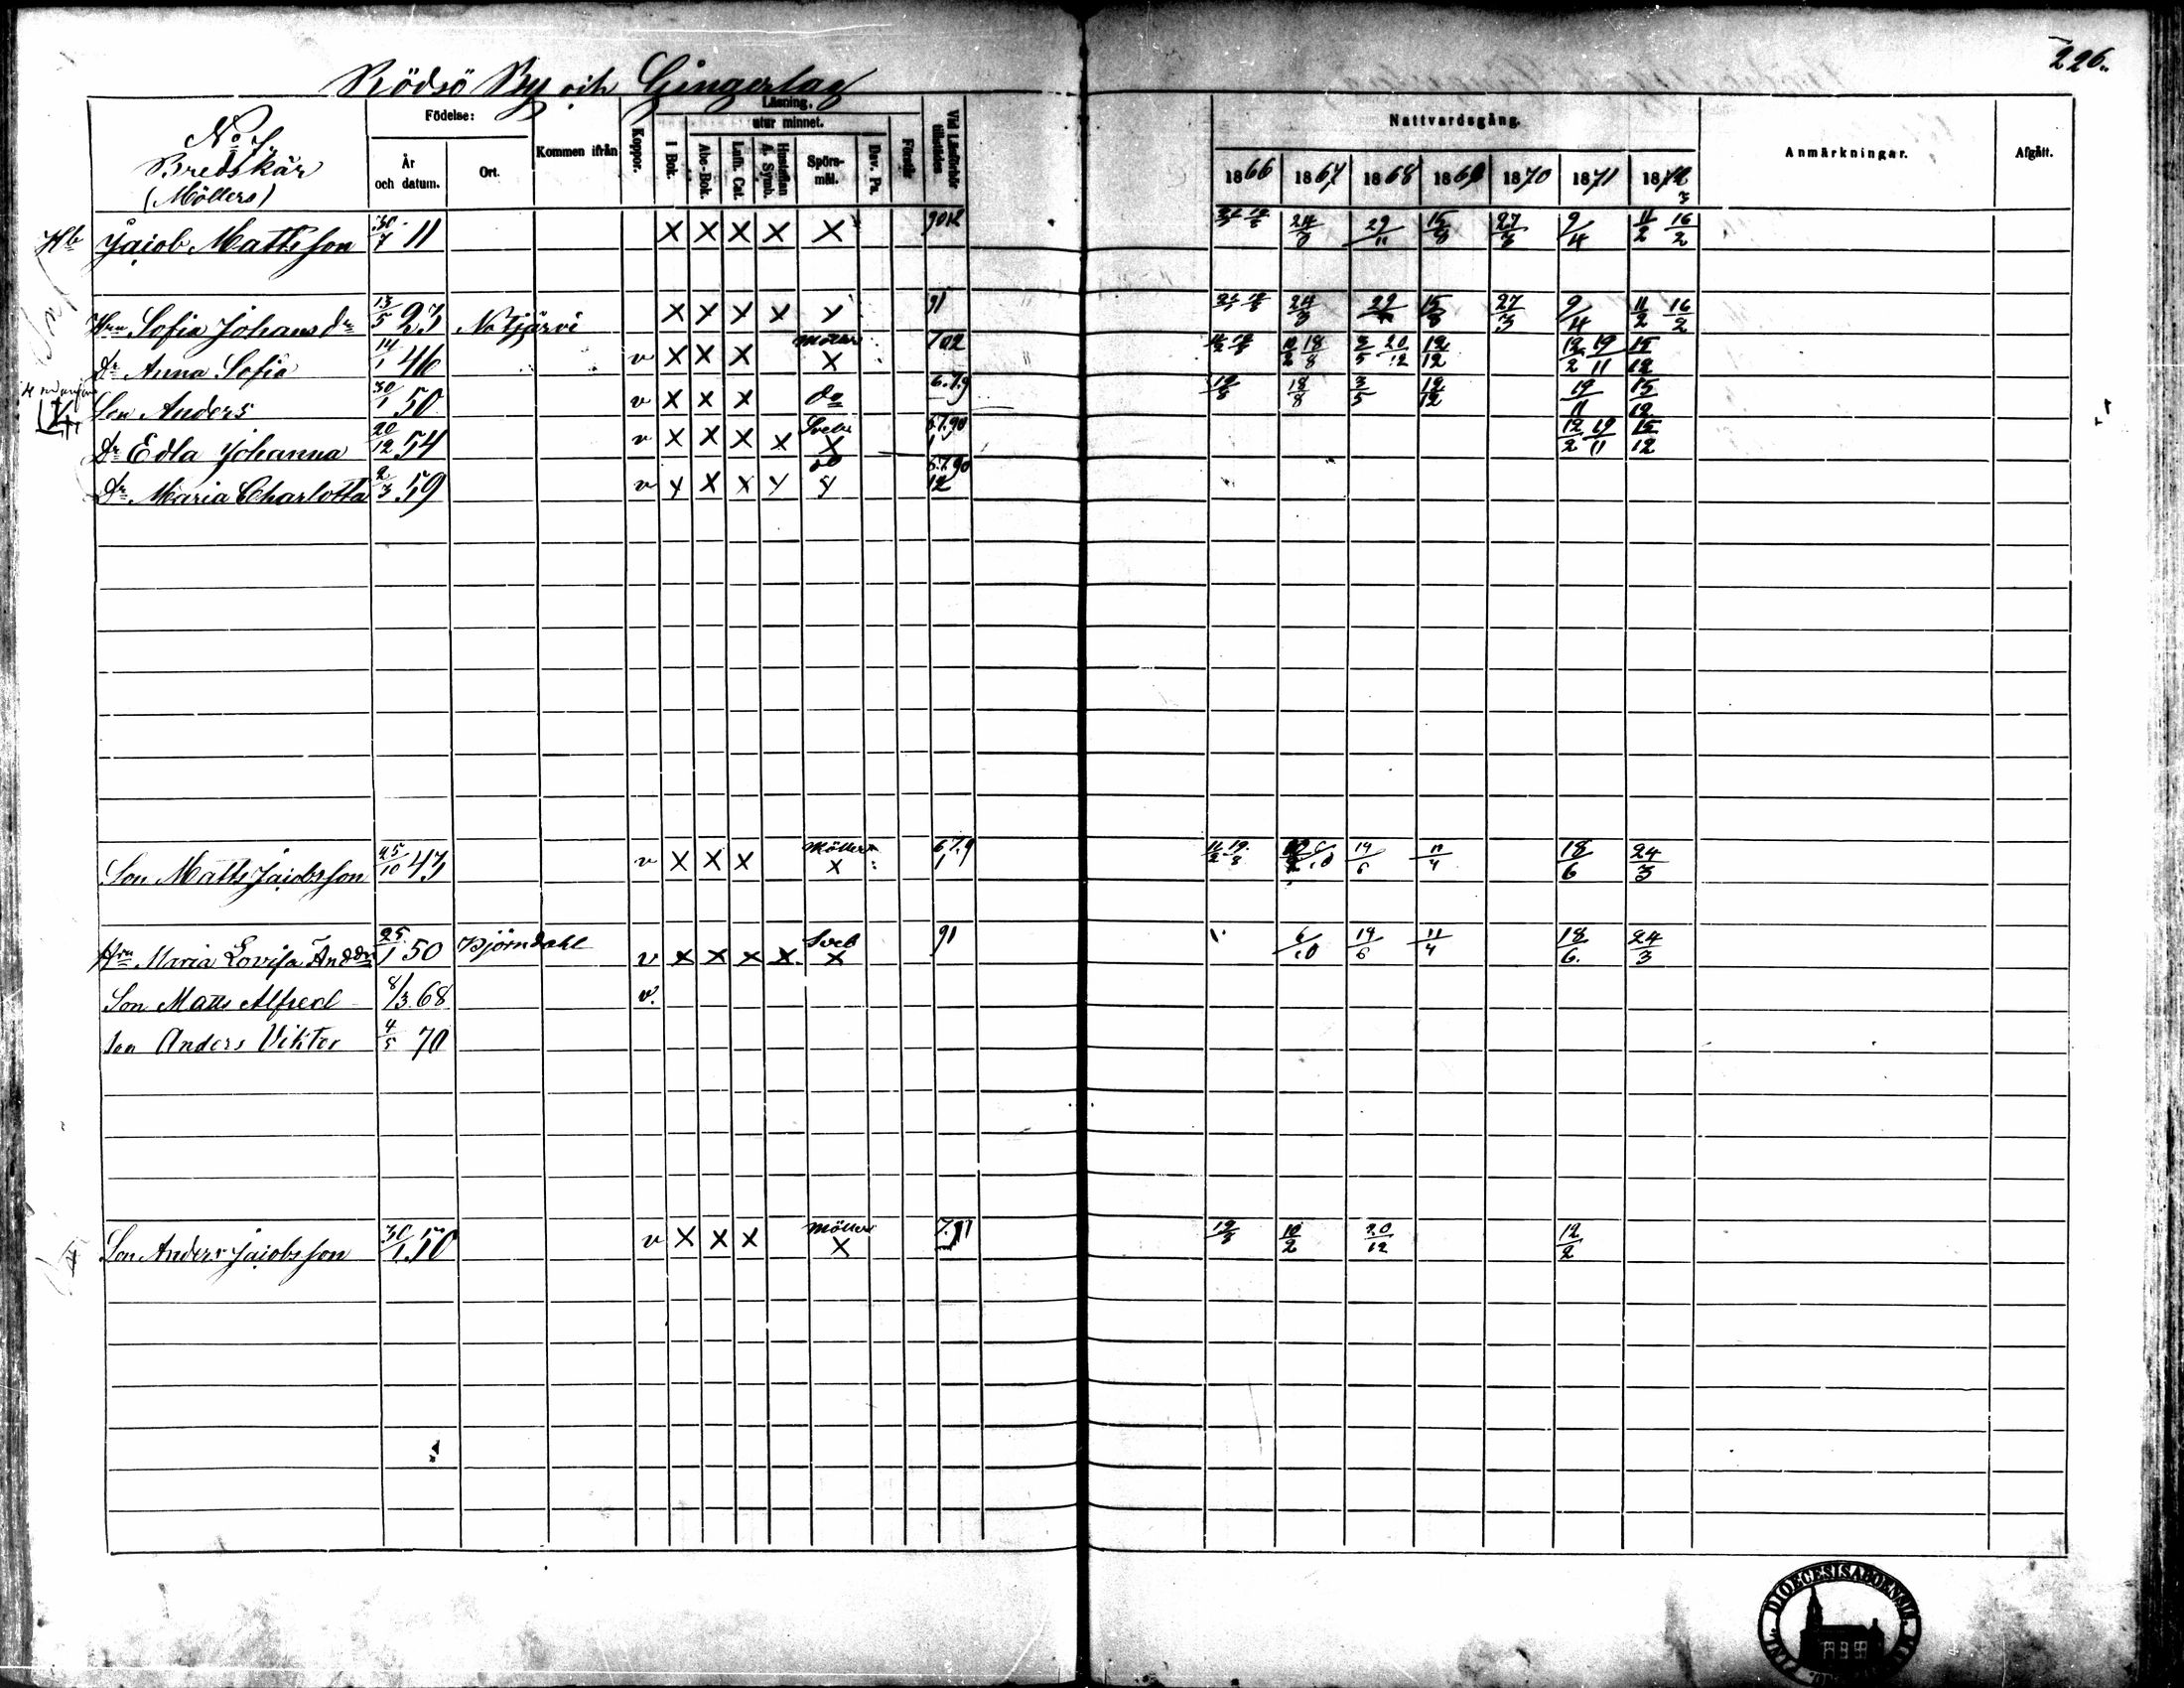 226.
Rödsö By och Gingerlag
No 7
Bredskär
(Möllers)
Födelse:
År och datum.
Ort.
Kommen ifrån
Koppor.
Läsning,
utur minnet.
I Bok.
Abc-Bok.
Luth. Cat.
Hustaflan A. Symb.
Spörs-mål.
Dav. Ps.
Förstår
Vid Läsförhör tillstädes
Nattvardsgång.
1866 1867 1868 1869 1870 1871 1872
Anmärkningar.
Afgått.
Hb Jacob Mattsson 30/7 11 X X X X X 24/3 29/11 15/8 27/3 9/4 11/2 16/2
Hru Sofia Johansdr 13/5 23 X X X X X 91 24/3 29/11 15/8 27/3 9/4 11/2 16/2
Dr Anna Sofia 14/1 46 v X X X Möller X 10/2 18/8 3/5 20/12 12/12 12/2 19/11 15/12
Son Anders 30/1 50 v X X X do 6.7.9 19/8 18/8 3/5 12/12 19/11 15/12
Dr Edla Johanna 20/12 54 v X X X X Sveb X 12/2 19/11 15/12
Dr Maria Charlotta 2/3 59 v X X X X do X 12
Son Matts Jacobsson 25/10 43 v X X X Möller X 6 7.9 1 11/2 19/8 19/6 11/4 18/6 24/3
Hru Maria Lovisa Anddr 25/1 50 Björndahl v X X X X Sveb X 91 6/10 19/6 11/4 18/6 24/3
Son Matts Alfred 8/3 68 v.
Son Anders Viktor 4/5 70
Son Anders Jacobsson 30/1 50 v X X X Möller X 19/8 10/2 20/12 12/2
DIOECESIS ABOENSIS